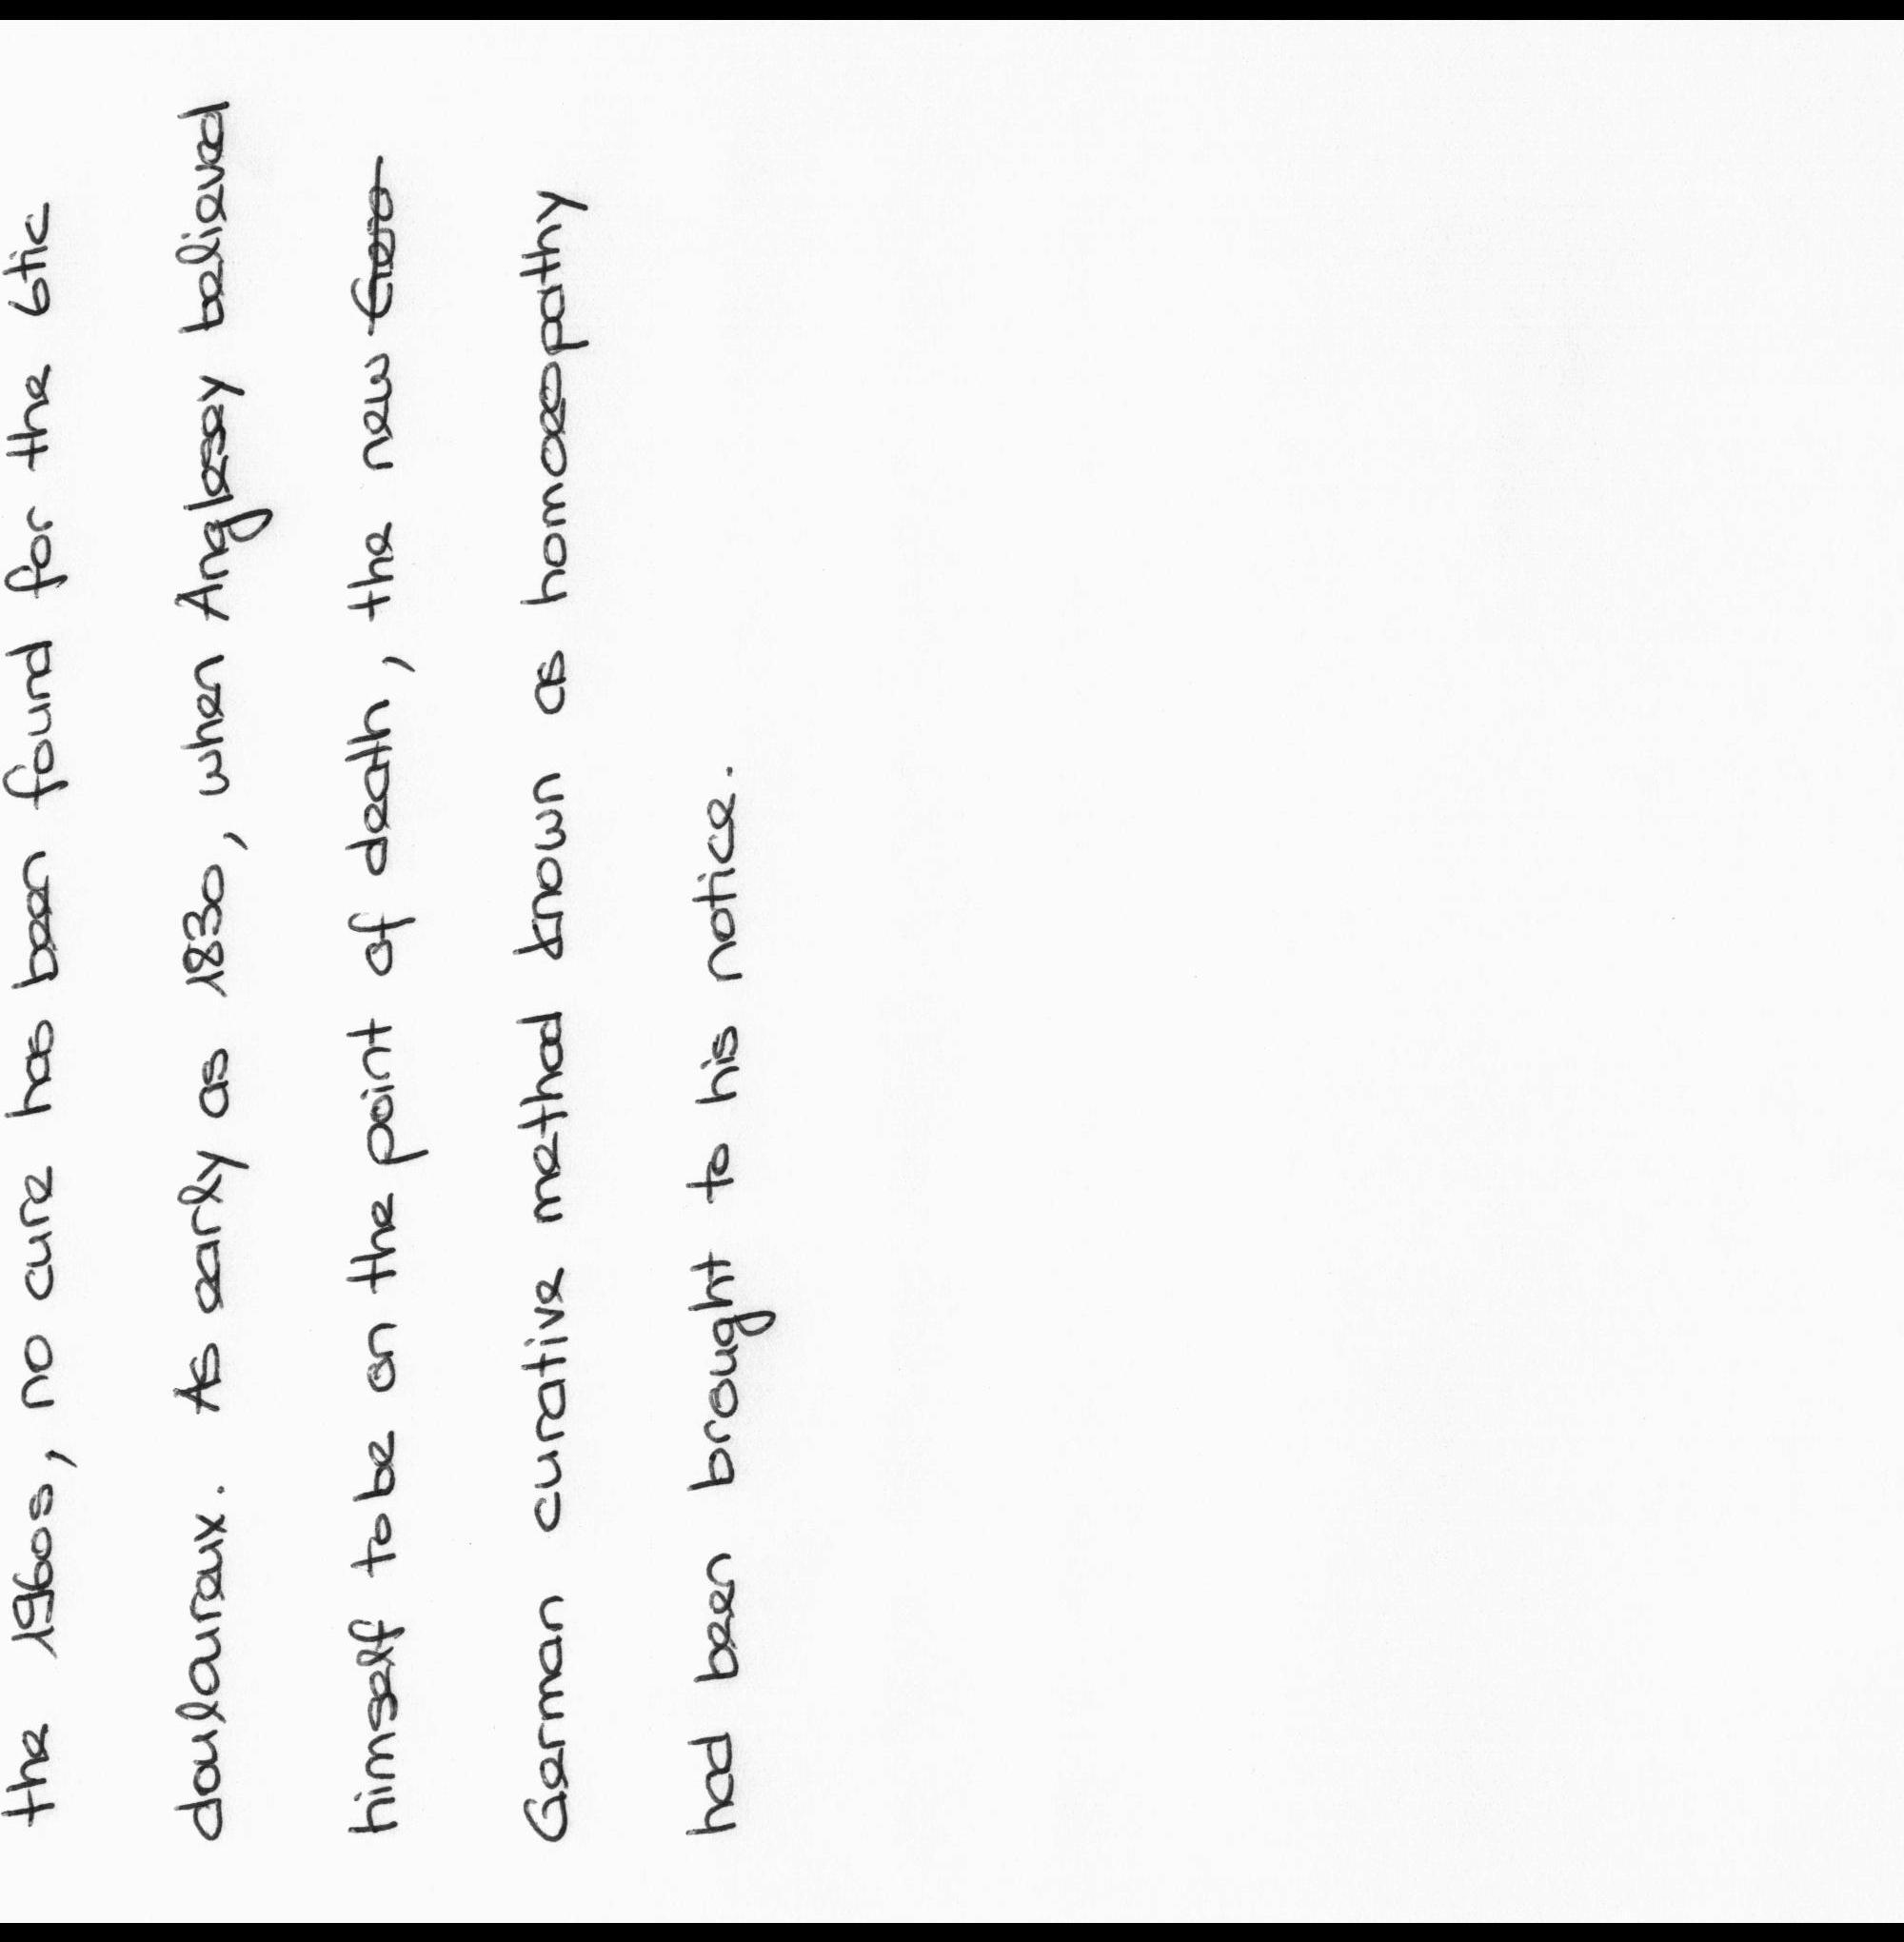 the 1960s, no cure has been found for the tic
douloureux. As early as 1830, when Anglesey believed
himself to be on the point of death, the new
German curative method known as homoeopathy
had been brought to his notice.